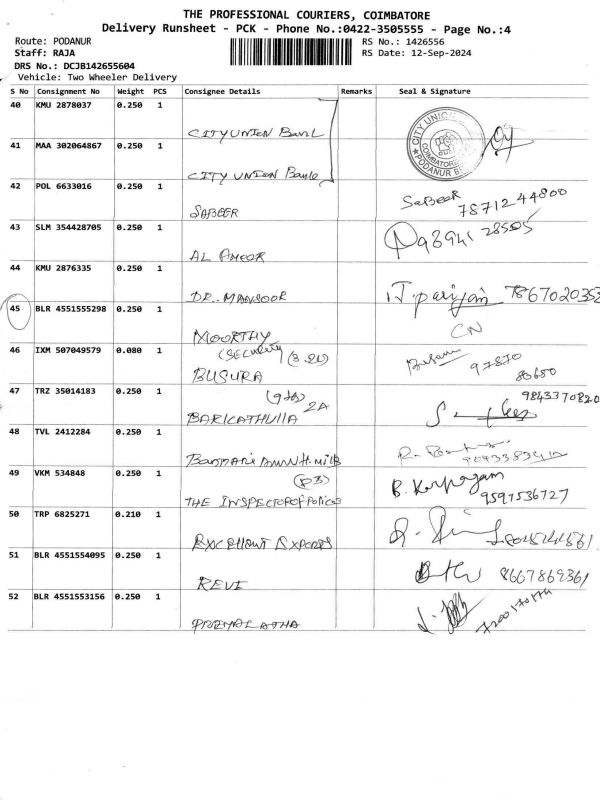 THE PROFESSIONAL COURIERS, COIMBATORE
Delivery Runsheet - PCK - Phone No.:0422-3505555 - Page No.:4
Route: PODANUR RS No.: 1426556
Staff: RAJA RS Date: 12-Sep-2024
DRS No.: DCJB142655604
Vehicle: Two Wheeler Delivery
S No Consignment No Weight PCS Consignee Details Remarks Seal & Signature
40 KMU 2878037 0.250 1
CITY UNION Bank
41 MAA 302064867 0.250 1
CITY UNION Bank
42 POL 6633016 0.250 1
SABEER SABEER 7871244800
43 SLM 354428705 0.250 1
AL AMEER
44 KMU 2876335 0.250 1
DR. MANSOOR
45 BLR 4551555298 0.250 1 CN
MOORTHY
46 IXM 507049579 0.080 1
(SECURITY)
BUSURA 97870
47 TRZ 35014183 0.250 1 9843370820
2A
BARICATHUllA
48 TVL 2412284 0.250 1
49 VKM 534848 0.250 1
THE INSPECTOR OF POLICE 9597536727
50 TRP 6825271 0.210 1
51 BLR 4551554095 0.250 1
REVI 8667869361
52 BLR 4551553156 0.250 1
PREMALATHA